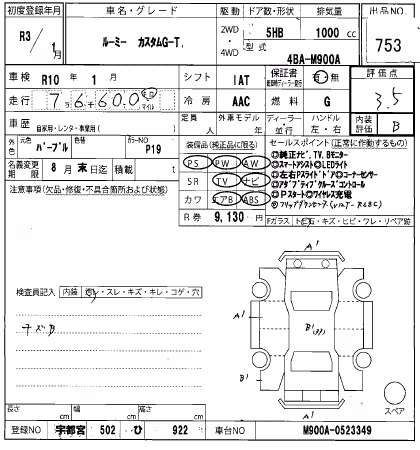 初度登録年月 車名・グレード 駆動 ドア数・形状 排気量 出品NO
R3/1月 ルーミー カスタムG-T 2WD・4WD 5HB 1000 cc 753
型式 4BA-M900A
車検 R10年 1月 シフト IAT 保証書 有・無 評価点
走行 7万6千600 km マイル 冷房 AAC 燃料 G 3.5
車歴 自家用・レンタ・事業用( ) 定員 人 外車モデル 年 ディーラー・並行 ハンドル 左・右 内装評価 B
外色 元色 パープル 色 カラーNO P19 装備品(純正品に限る) セールスポイント(正常に作動するもの)
名義変更期限 8月 末日迄 積載 t PS PW AW
◎純正ナビ、TV、Bモニター
◎スマートアシスト◎LEDライト
注意事項(欠品・修復・不具合箇所および状態) SR TV ナビ
◎左右Pスライドドア◎コーナーセンサー
◎アダプティブクルーズコントロール
カワ エアB ABS
◎Pスタート◎ワイヤレス充電
R券 9,130円
Fガラス トビ石・キズ・ヒビ・ワレ・リペア跡
A'
検査員記入 内装 ・スレ・キズ・キレ・コゲ・穴
A'
キズB
B'
A'
スペア
A'
長さ cm 幅 cm 高さ cm
登録NO 宇都宮 502 ひ 922 車台NO M900A-0523349